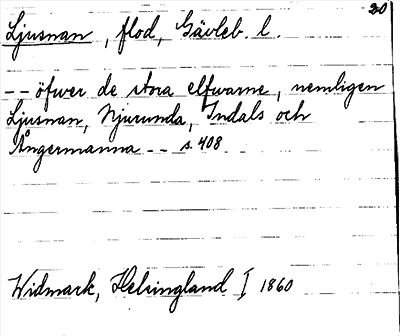 20
Ljusnan, flod, Gävleb. l.
-- öfwer de stora elfwarne, nemligen
Ljusnan, Njurunda, Indals och
Ångermanna -- s. 408
Widmark, Helsingland I 1860